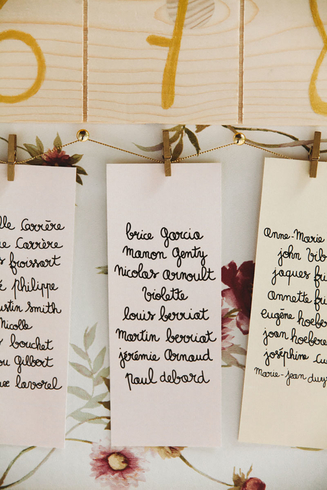 7
lle Carrère
ue Carrère
s froissart
philippe
ustin Smith
Nicolle
s bouchet
ou Gilbert
lavorel
brice Garcia
manon Genty
Nicolas Arnoult
Violette
louis berriat
Martin berriat
jérémie Arnaud
paul debord
Anne-Marie
john bib
jaques fui
Annette fui
eugène hoebe
joan hoebere
joséphine Cu
Marie-jean duy